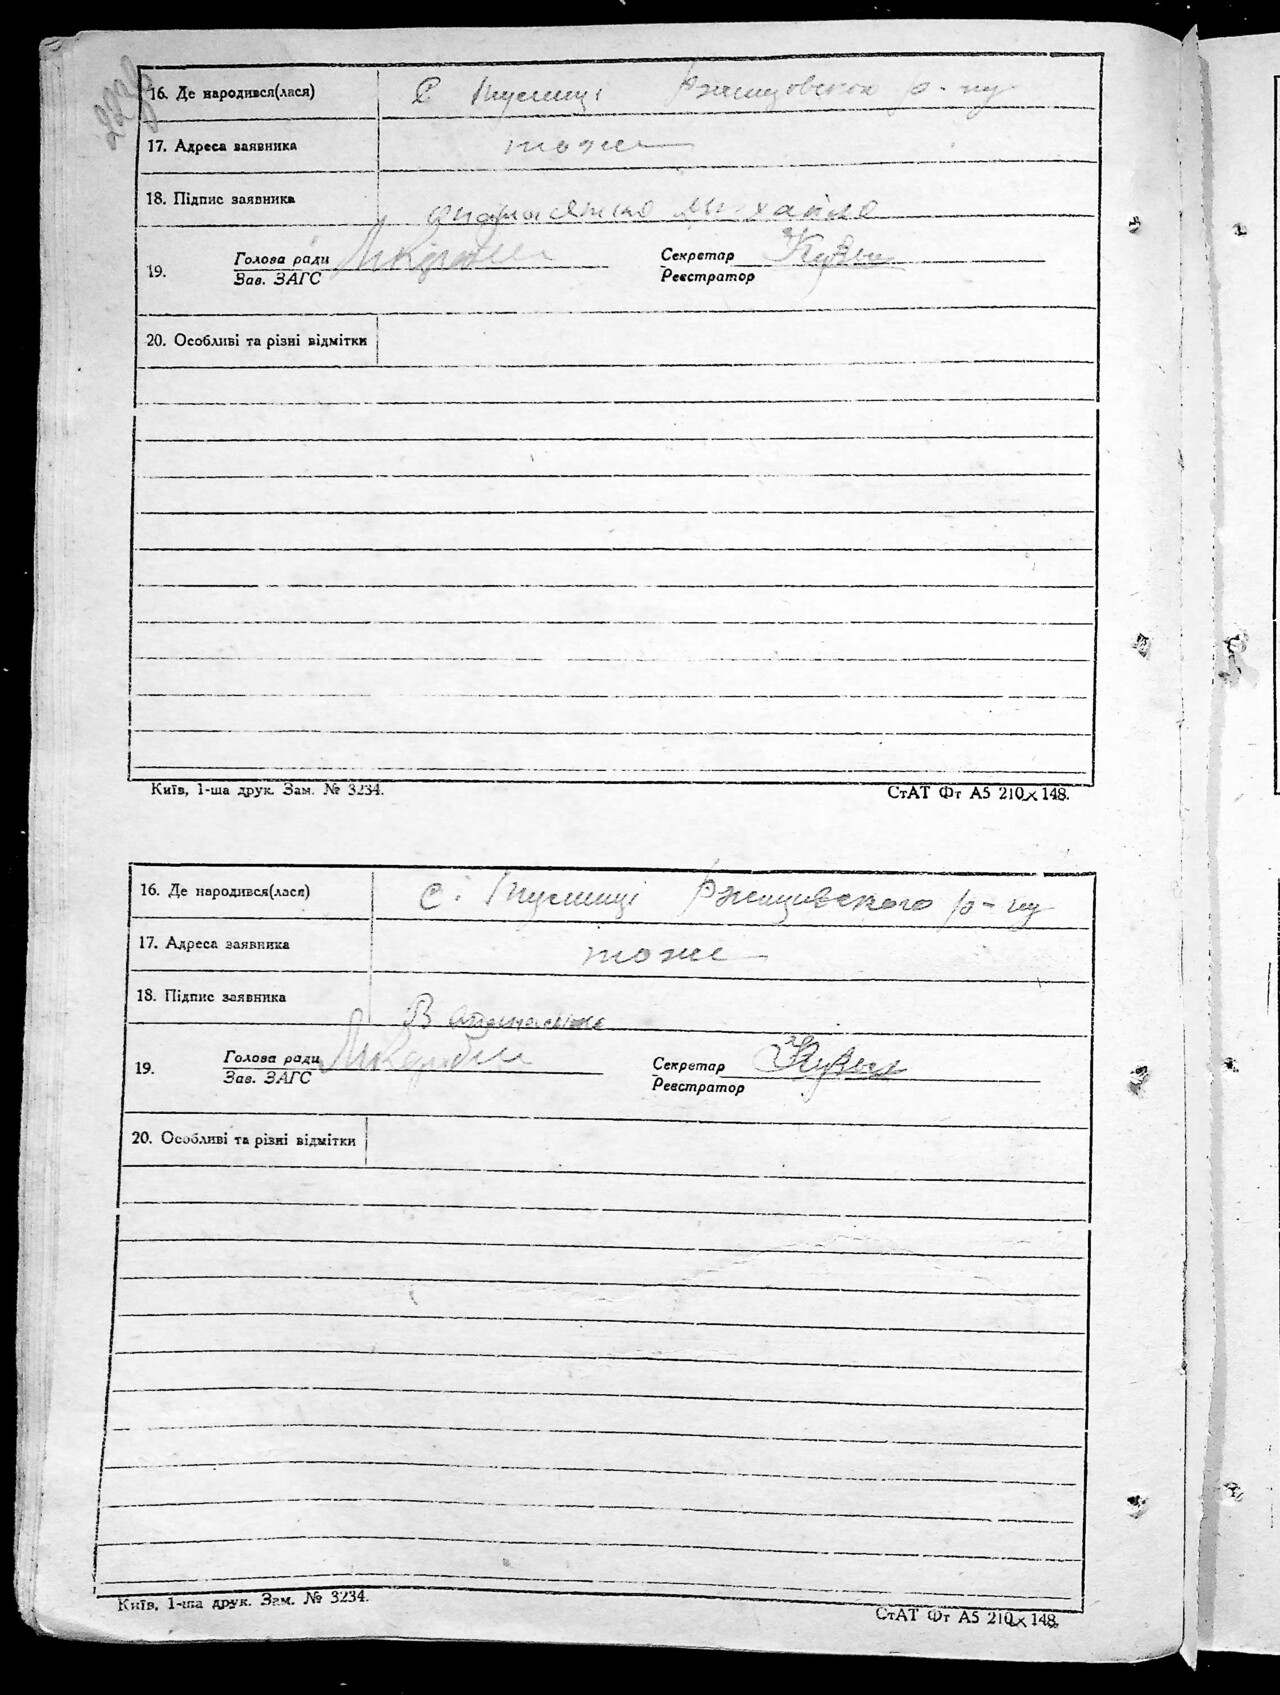 16. Де народився(лася) С Пуслиці Ржищовского р-ну
17. Адреса заявника тоже
18. Підпис заявника Михайло
19. Голова ради
Зав. ЗАГС
Секретар
Реєстратор
20. Особливі та різні відмітки
Київ, 1-ша друк. Зам. № 3234.
СтАТ Фт А5 210×148.
16. Де народився(лася) с. Ржищивского р-ну
17. Адреса заявника тоже
18. Підпис заявника
19. Голова ради
Зав. ЗАГС
Секретар
Реєстратор
20. Особливі та різні відмітки
Київ, 1-ша друк. Зам. № 3234.
СтАТ Фт А5 210×148.